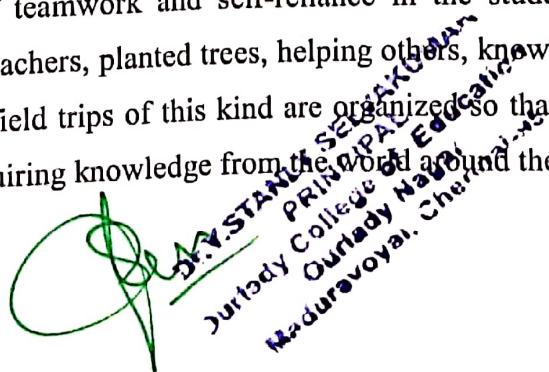 teamwork and self-reliance in the stude
achers, planted trees, helping others, know
ield trips of this kind are organized so tha
iring knowledge from the world around the
Dr.V.STANLY SELVAKUMAR
PRINCIPAL
Ourlady College of Education
Ourlady Nagar
Maduravoyal, Chennai-